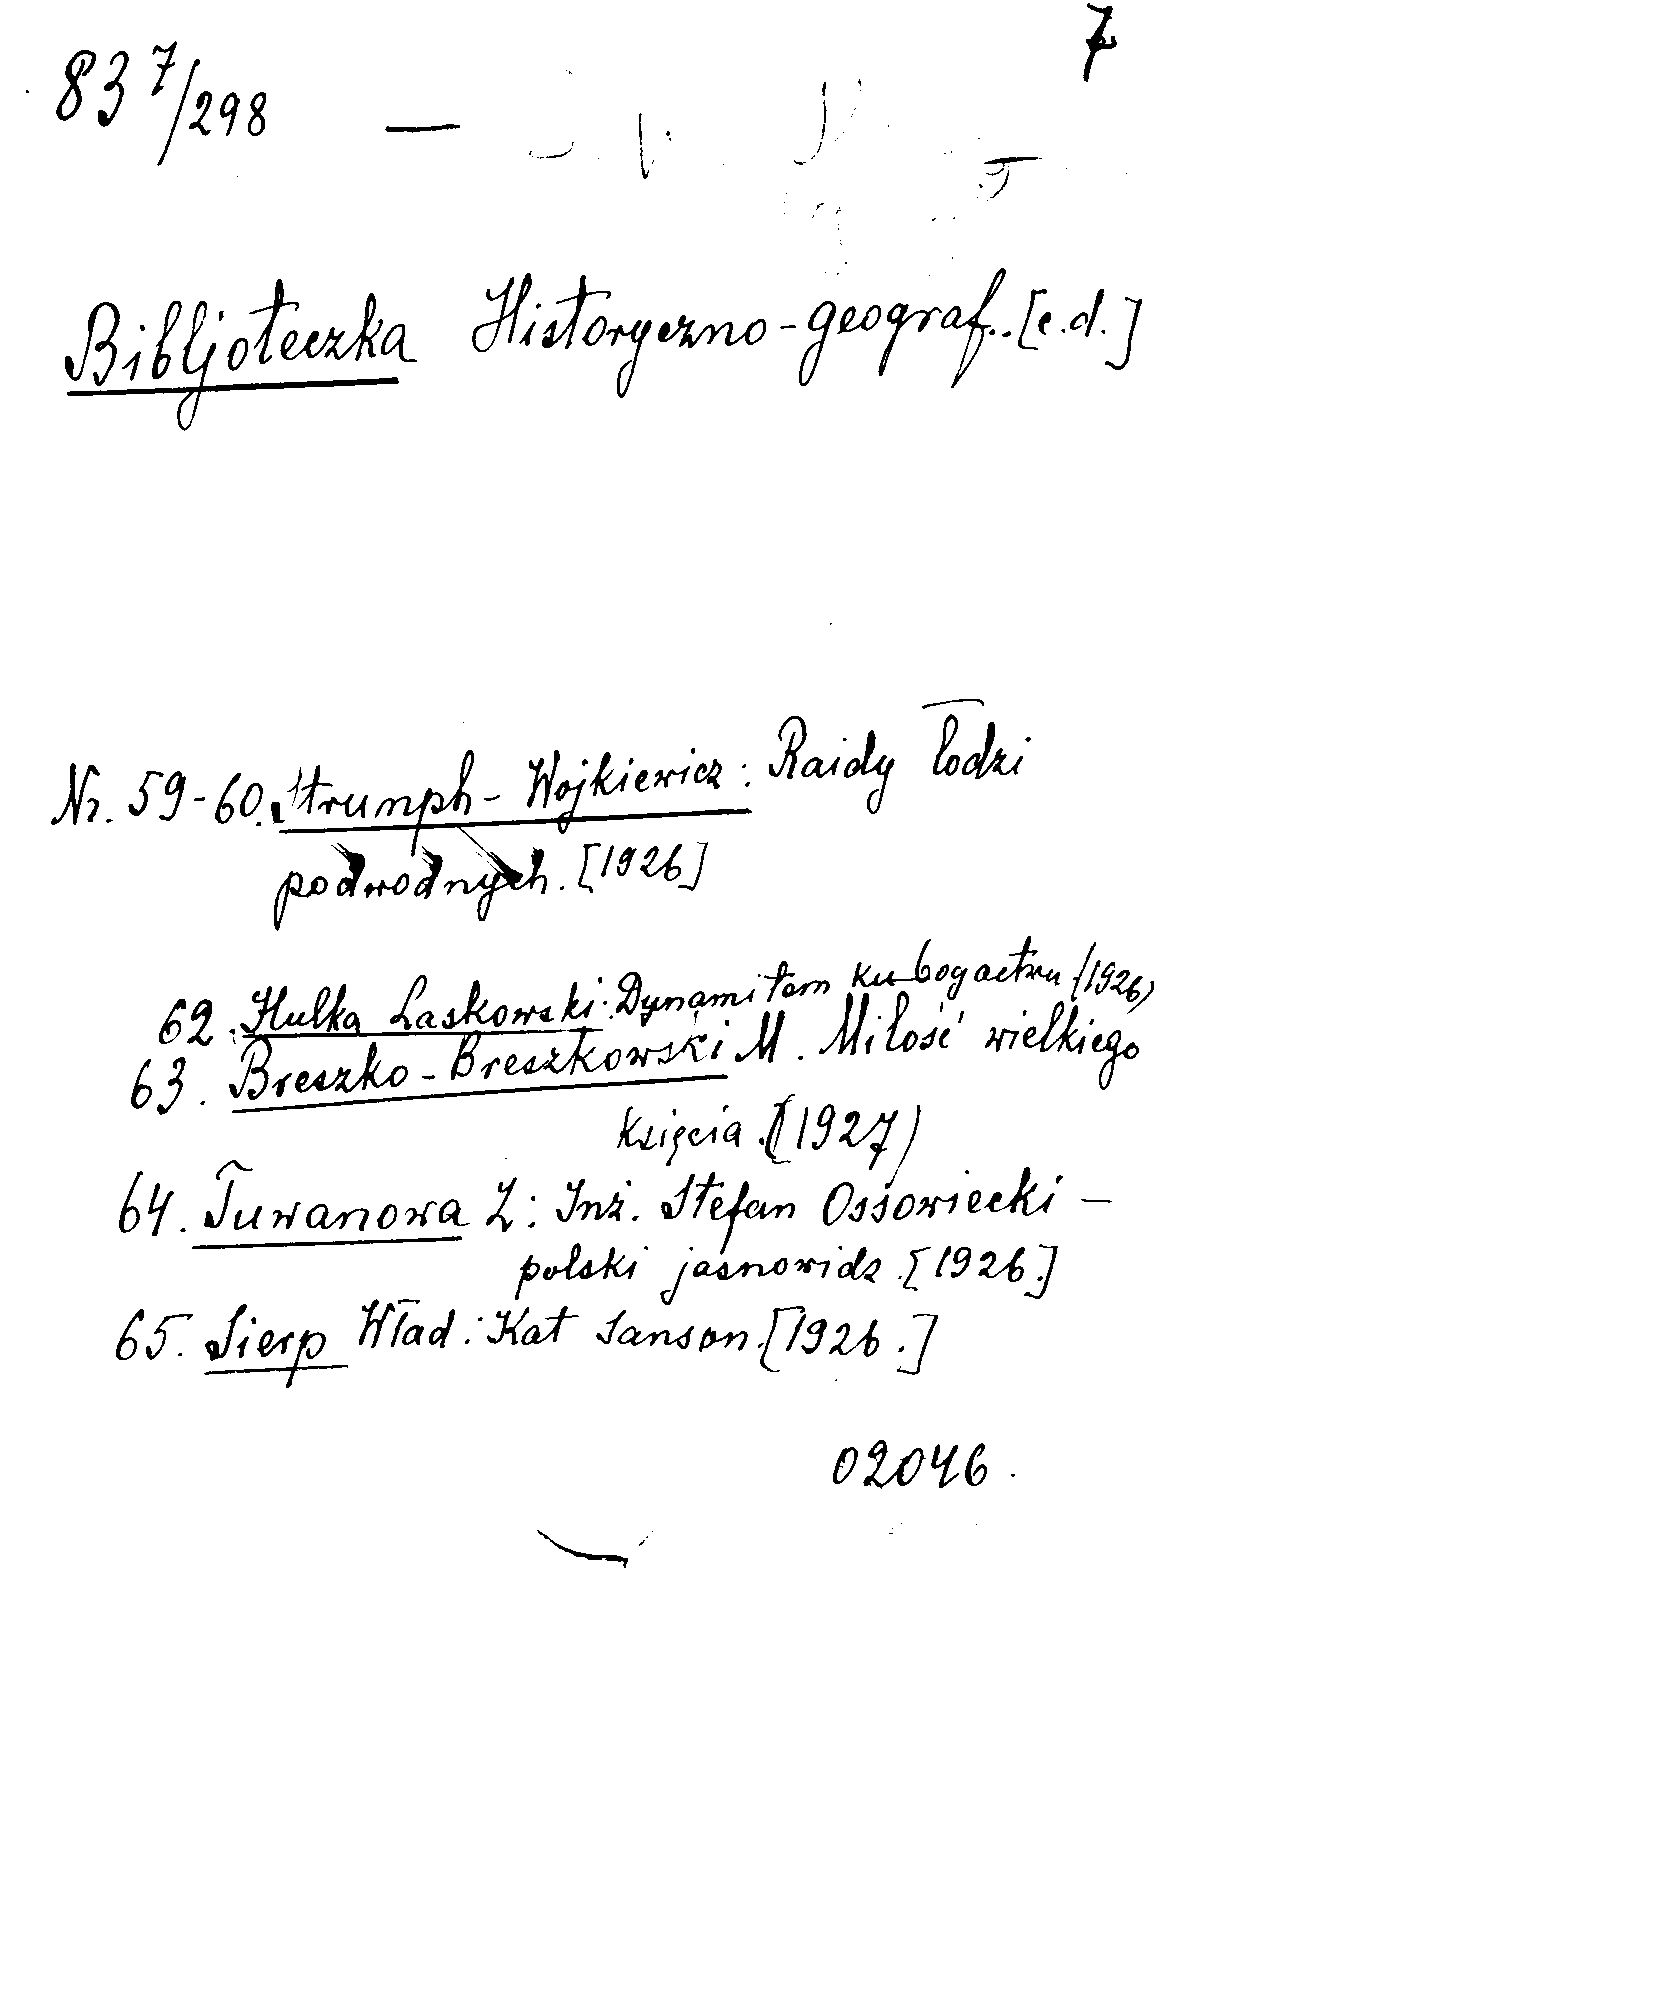 7
83 7/298 —
Bibljoteczka Historyczno-geograf..[c.d.]
Nr. 59-60. Strumph-Wojkiewicz: Raidy łodzi
podwodnych. [1926]
62. Hulka Laskowski: Dynamitem ku bogactwu (1926)
63. Breszko-Breszkowski M. Miłość wielkiego
księcia. (1927)
64. Tuwanowa Z: Inż. Stefan Ossowiecki —
polski jasnowidz. [1926.]
65. Sierp Wład: Kat Sanson. [1926.]
02046.